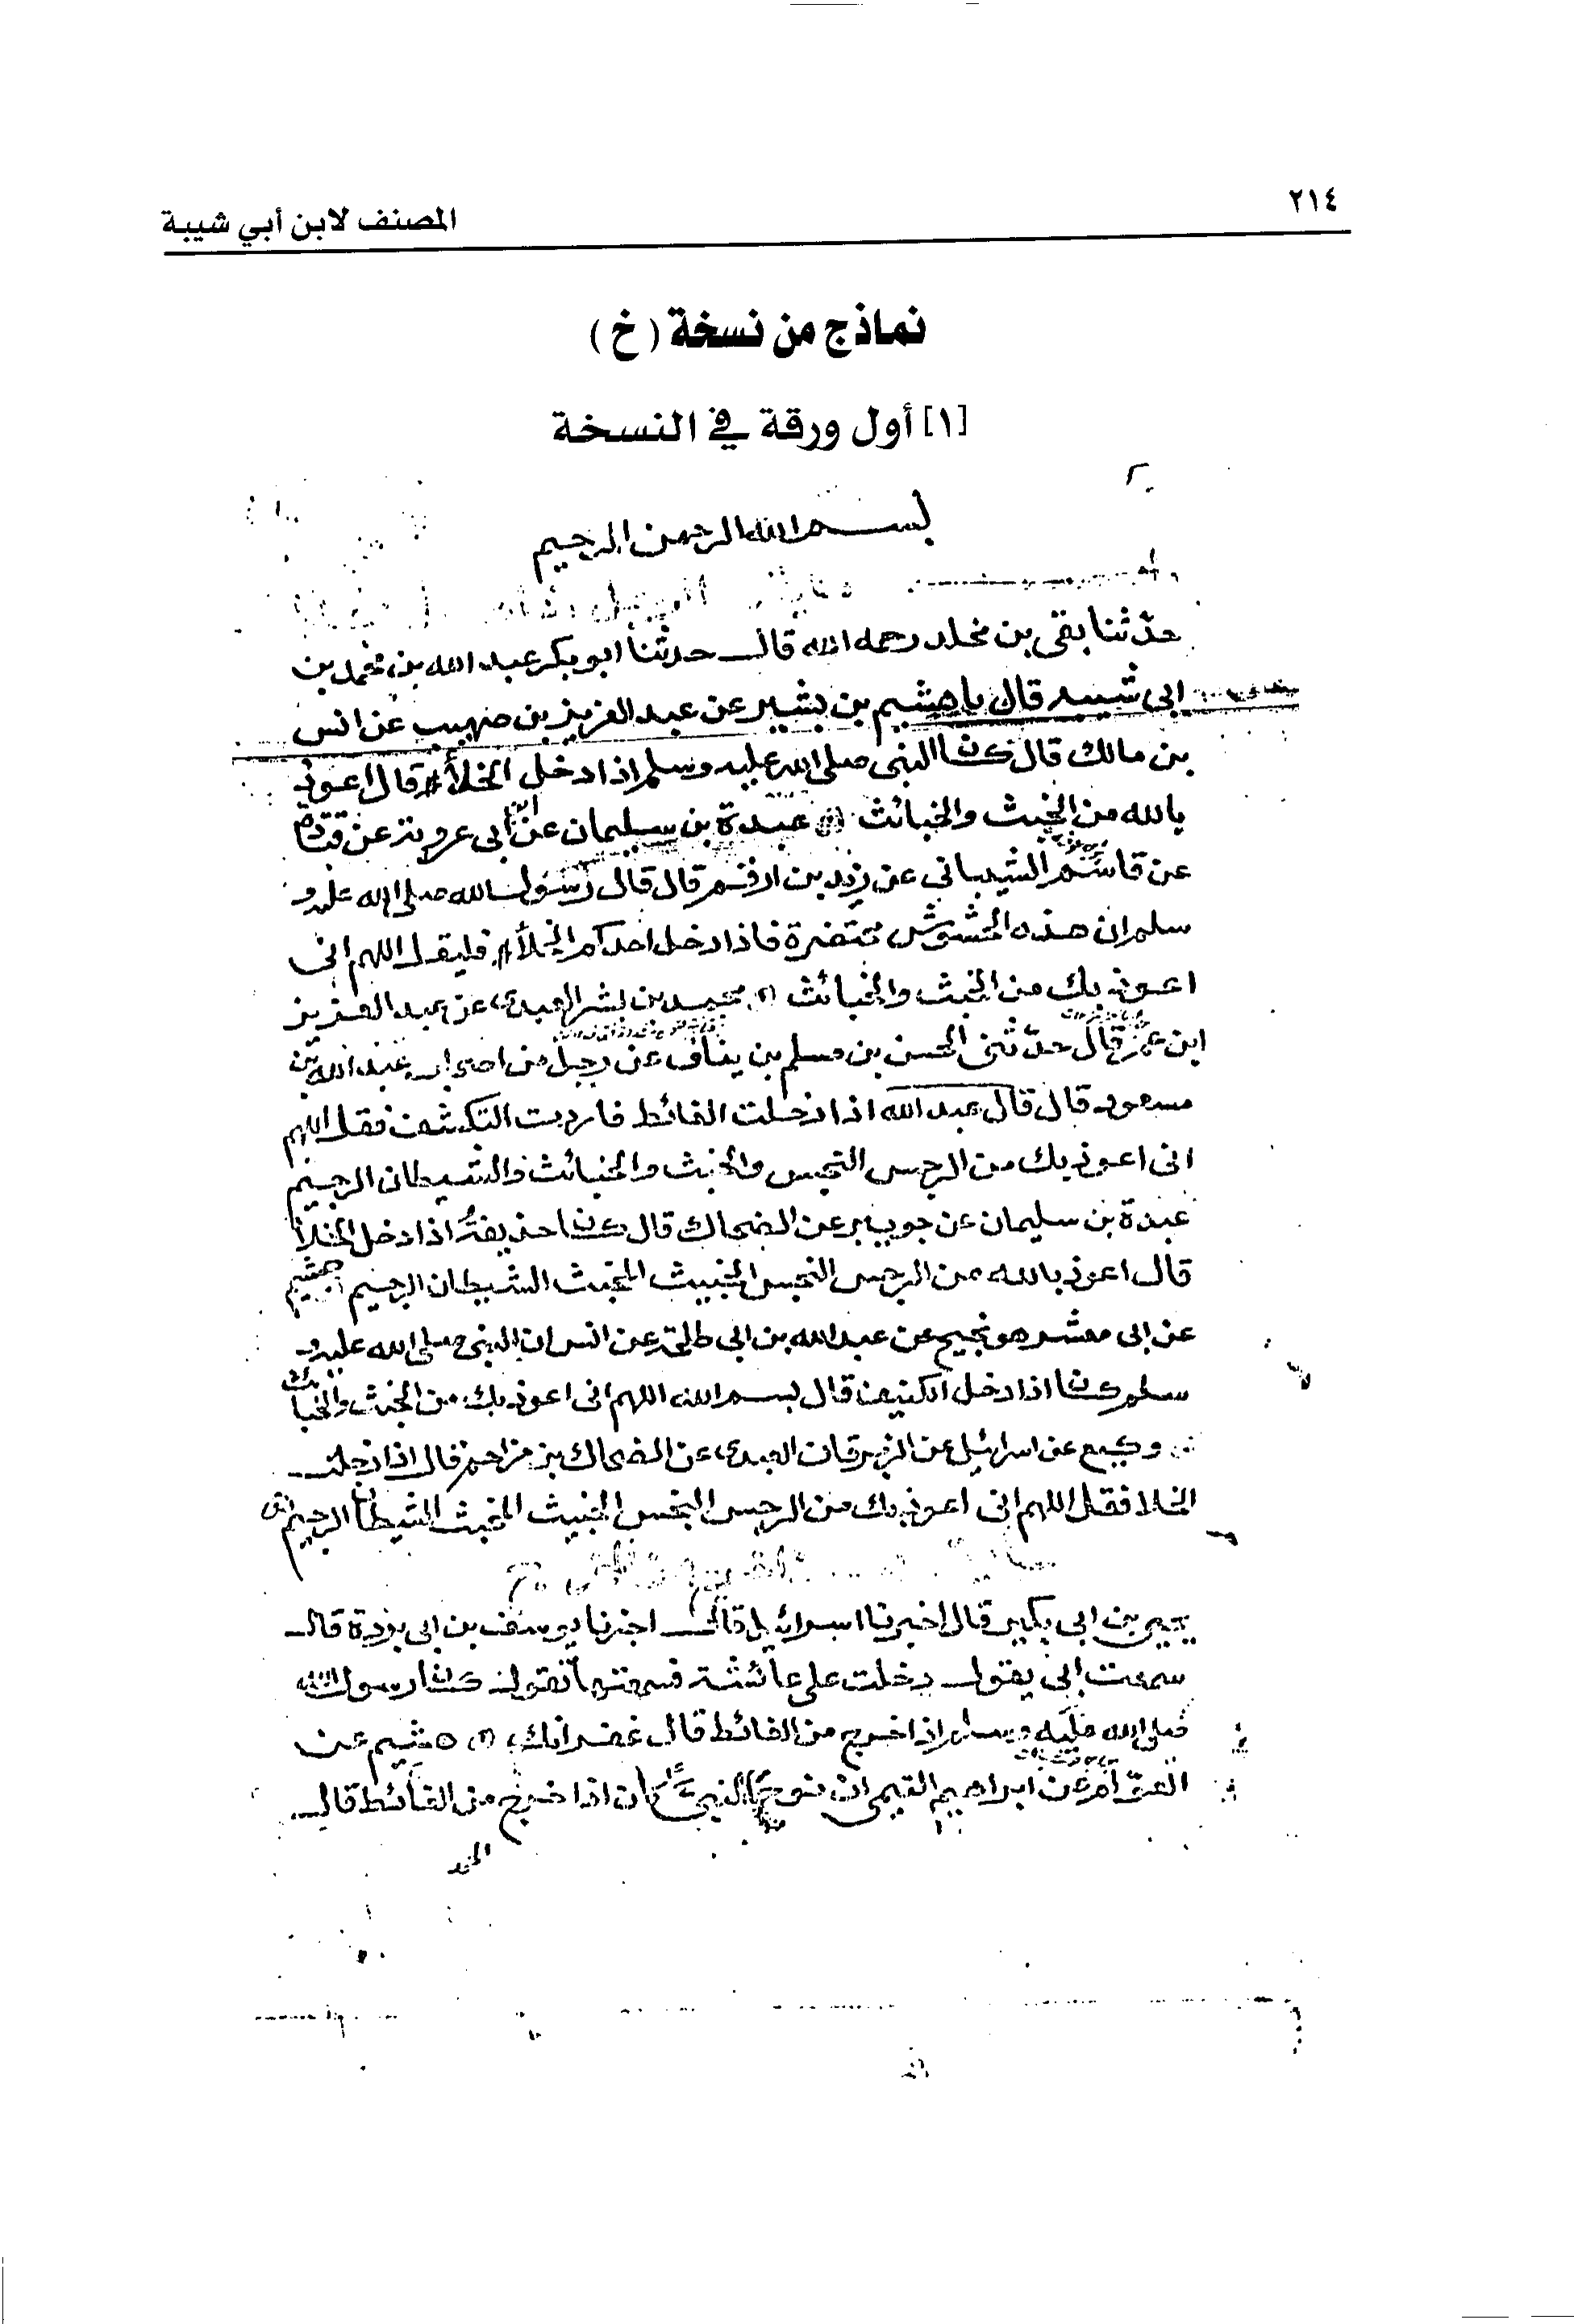 ٢١٤
المصنف لابن أبي شيبة
نماذج من نسخة (خ)
[١] أول ورقة في النسخة
بسم الله الرحمن الرحيم
حدثنا بقى بن مخلد رحمه الله قال حدثنا ابو بكر عبد الله بن محمد بن
ابى شيبه قال نا هشيم بن بشير عن عبد العزيز بن صهيب عن انس
بن مالك قال كان النبى صلى الله عليه وسلم اذا دخل الخلأ قال اعوذ
بالله من الخبث والخبائث عبدة بن سليمان عن ابن ابى عروبة عن قتادة
عن قاسم الشيبانى عن زيد بن ارقم قال قال رسول الله صلى الله عليه و
سلم ان هذه الحشوش محتضرة فاذا دخل احدكم الخلأ فليقل اللهم انى
اعوذ بك من الخبث والخبائث محمد بن بشر العبدى عن عبد العزيز
ابن عمر قال حدثنى الحسن بن مسلم بن يناف عن رجل من اصحاب عبد الله بن
مسعود قال قال عبد الله اذا دخلت الغائط فاردت التكشف فقل اللهم
انى اعوذ بك من الرجس النجس والخبث والخبائث والشيطان الرجيم
عبدة بن سليمان عن جويبر عن الضحاك قال كان حذيفة اذا دخل الخلأ
قال اعوذ بالله من الرجس النجس الخبيث المخبث الشيطان الرجيم هشيم
عن ابى معشر هو نجيح عن عبد الله بن ابى طلحة عن انس ان النبى صلى الله عليه و
سلم كان اذا دخل الكنيف قال بسم الله اللهم انى اعوذ بك من الخبث والخبائث
وكيع عن اسرائيل عن الزبرقان العبدى عن الضحاك بن مزاحم قال اذا دخلت
الخلا فقل اللهم انى اعوذ بك من الرجس النجس الخبيث المخبث الشيطان الرجيم
يحيى بن ابى بكير قال اخبرنا اسرائيل قال اخبرنا يوسف بن ابى بردة قال
سمعت ابى يقول دخلت على عائشة فسمعتها تقول كان رسول الله
صلى الله عليه وسلم اذا خرج من الغائط قال غفرانك هشيم عن
العوام عن ابراهيم التيمى ان نوحا النبى كان اذا خرج من الغائط قال
الحمد